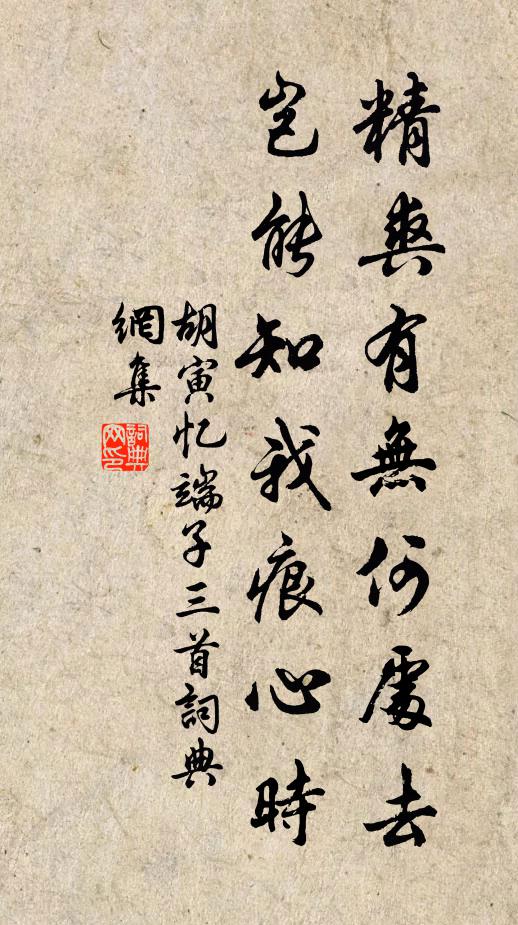 精爽有無何處去
豈能知我痕心時
胡寅忆端子三首詞典
網集
詞典
网印